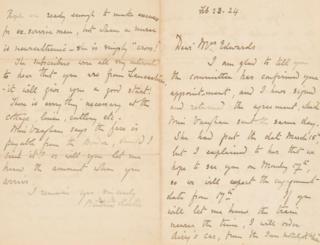 Feb 23. 24.
Dear Mrs Edwards
I am glad to tell you
the committee has confirmed your
appointment, and I have signed
and returned the agreement, which
Miss Vaughan sent the same day.
She had put the date March 15th,
but I explained to her that we
hope to see you on Monday 17th.
so we will expect the engagement
dates from 17th. If you
will let me know the train
nearer the time, I will order
car, from the
ready enough to make excuses
for ex-service men, but when a nurse
is neurasthenic - she is simply "cross"!
The subscribers were all very interested
to hear that you were from
- it will give you a good start.
There is everything necessary at the
cottage linen, cutlery etc.
Miss Vaughan says the fare is
payable from the
so will you let me
know the amount when you
arrive.
I remain yrs sincerely